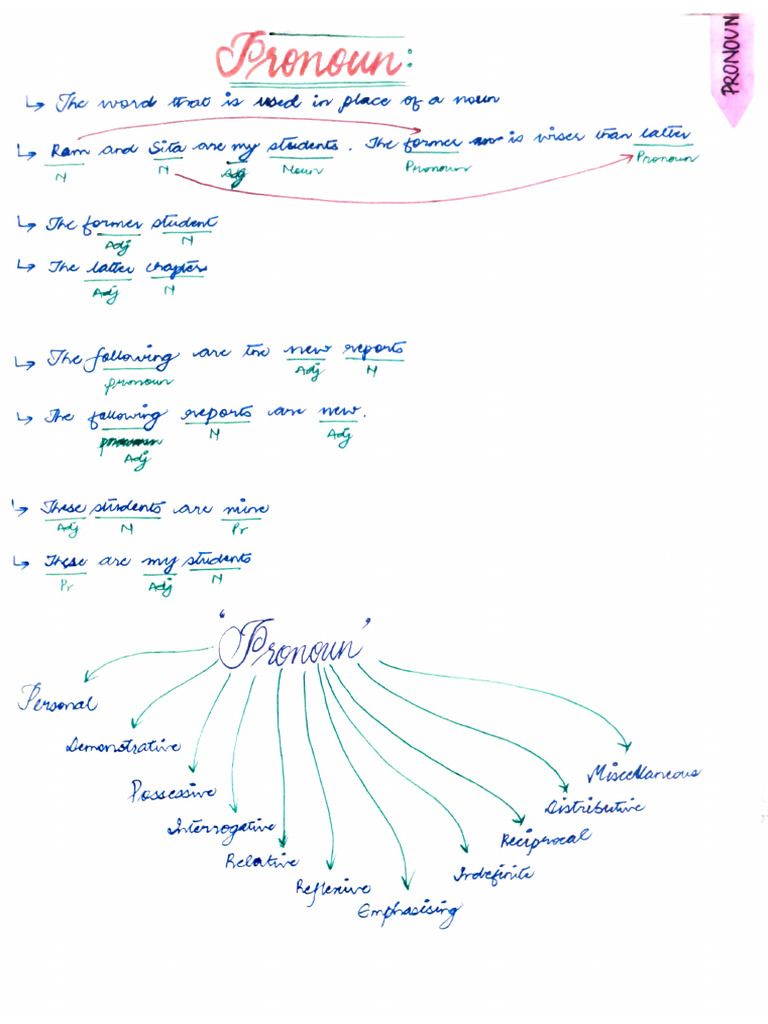 Pronoun:
PRONOUN
↳ The word that is used in place of a noun
↳ Ram and Sita are my students. The former is wiser than latter
N N Adj Noun Pronoun Pronoun
↳ The former student
Adj N
↳ The latter chapters
Adj N
↳ The following are the new reports
pronoun Adj N
↳ The following reports are new.
N Adj
Adj
↳ These students are mine
Adj N Pr
↳ These are my students
Pr Adj N
'Pronoun'
Personal
Demonstrative
Possessive
Interrogative
Relative
Reflexive
Emphasising
Indefinite
Reciprocal
Distributive
Miscellaneous